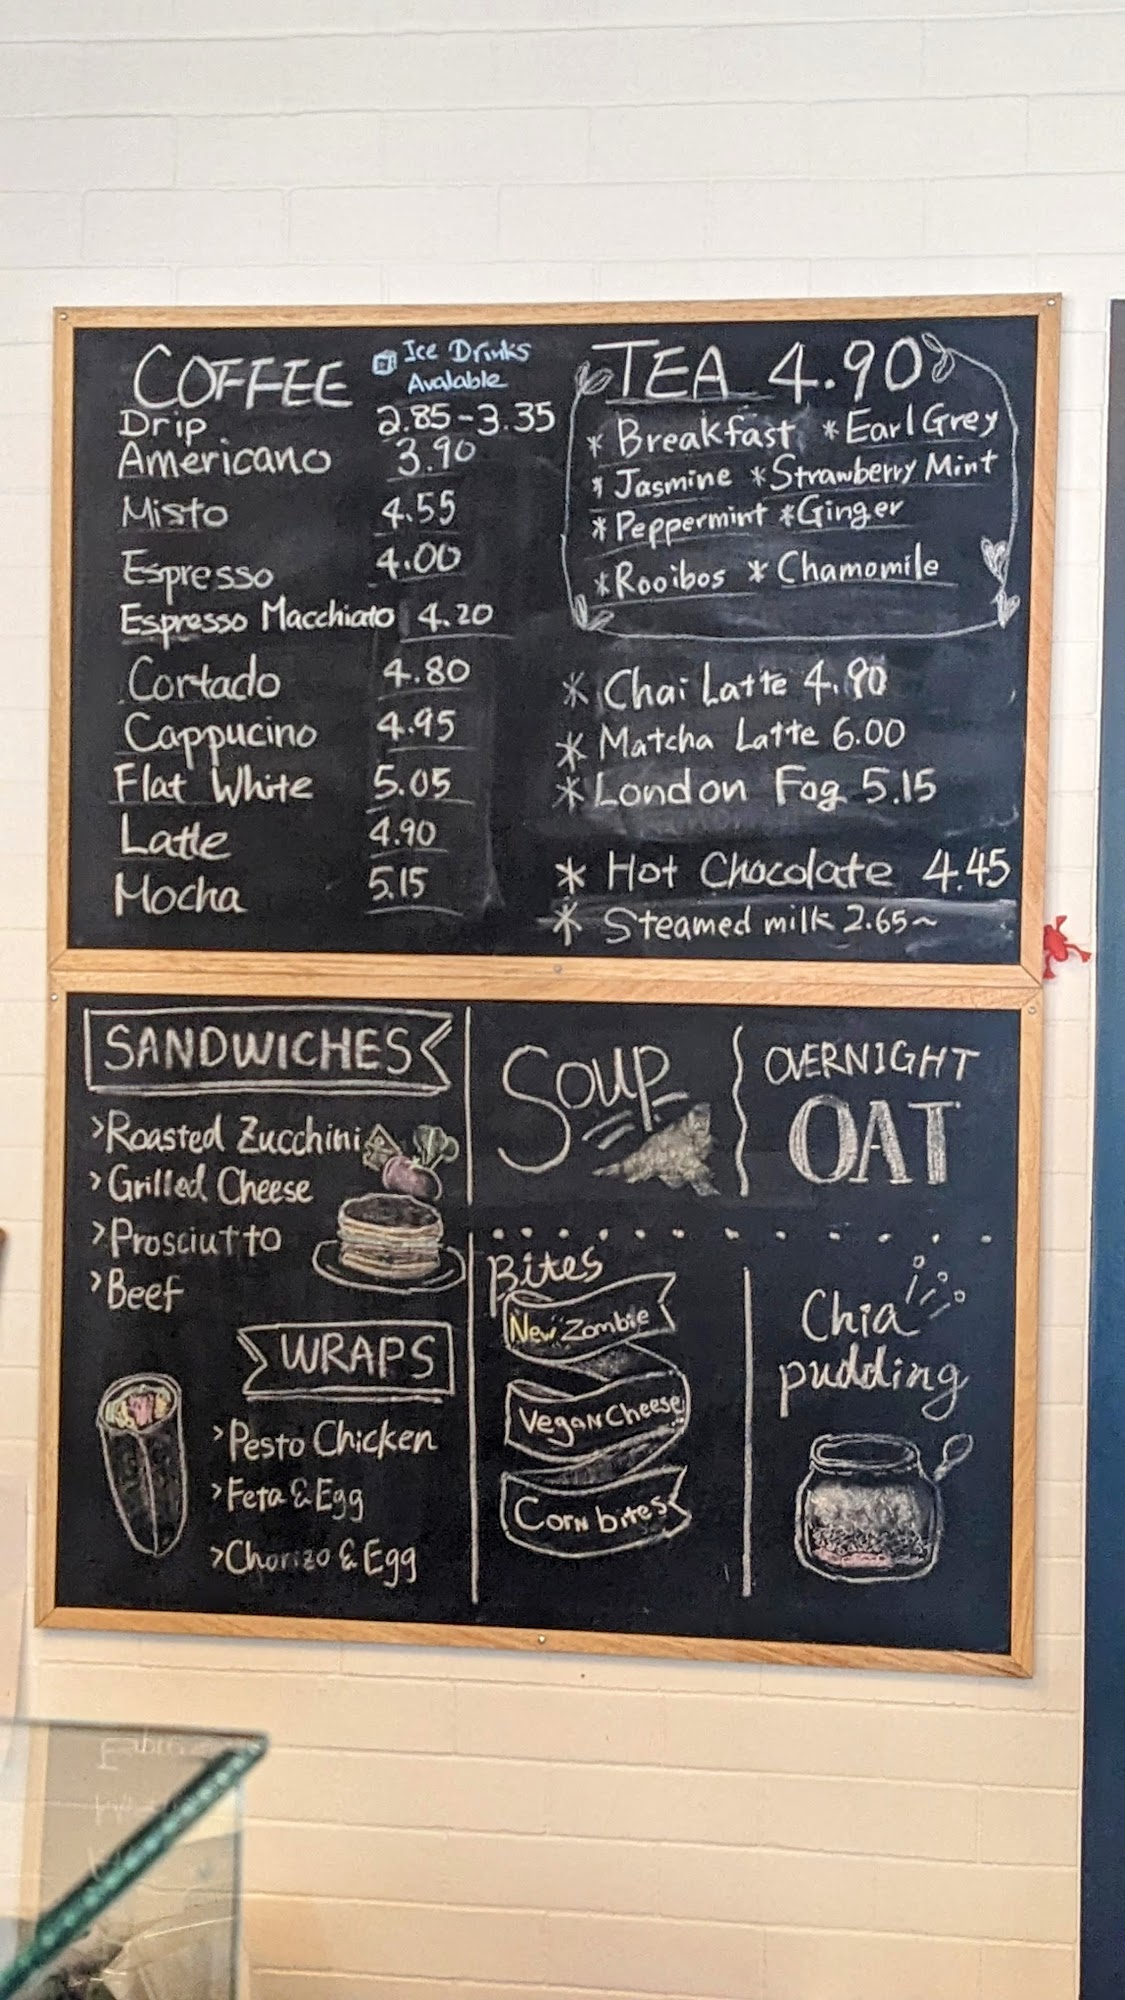 COFFEE
Ice Drinks
Avalable
Drip 2.85-3.35
Americano 3.90
Misto 4.55
Espresso 4.00
Espresso Macchiato 4.20
Cortado 4.80
Cappucino 4.95
Flat White 5.05
Latte 4.90
Mocha 5.15
TEA 4.90
* Breakfast * Earl Grey
* Jasmine * Strawberry Mint
* Peppermint * Ginger
* Rooibos * Chamomile
* Chai Latte 4.90
* Matcha Latte 6.00
* London Fog 5.15
* Hot Chocolate 4.45
* Steamed milk 2.65~
SANDWICHES
>Roasted Zucchini
>Grilled Cheese
>Prosciutto
>Beef
WRAPS
>Pesto Chicken
>Feta & Egg
>Chorizo & Egg
Soup
OVERNIGHT
OAT
Bites
New Zombie
Vegan Cheese
Corn bites
Chia
pudding